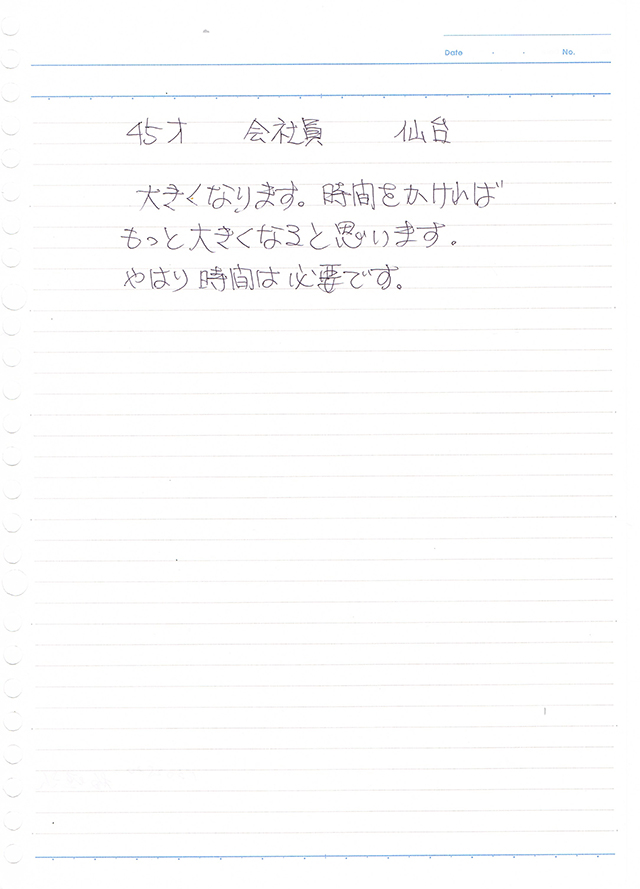 Date ・ ・ No.
45才 会社員 仙台
大きくなります。時間をかければ
もっと大きくなると思います。
やはり時間は必要です。